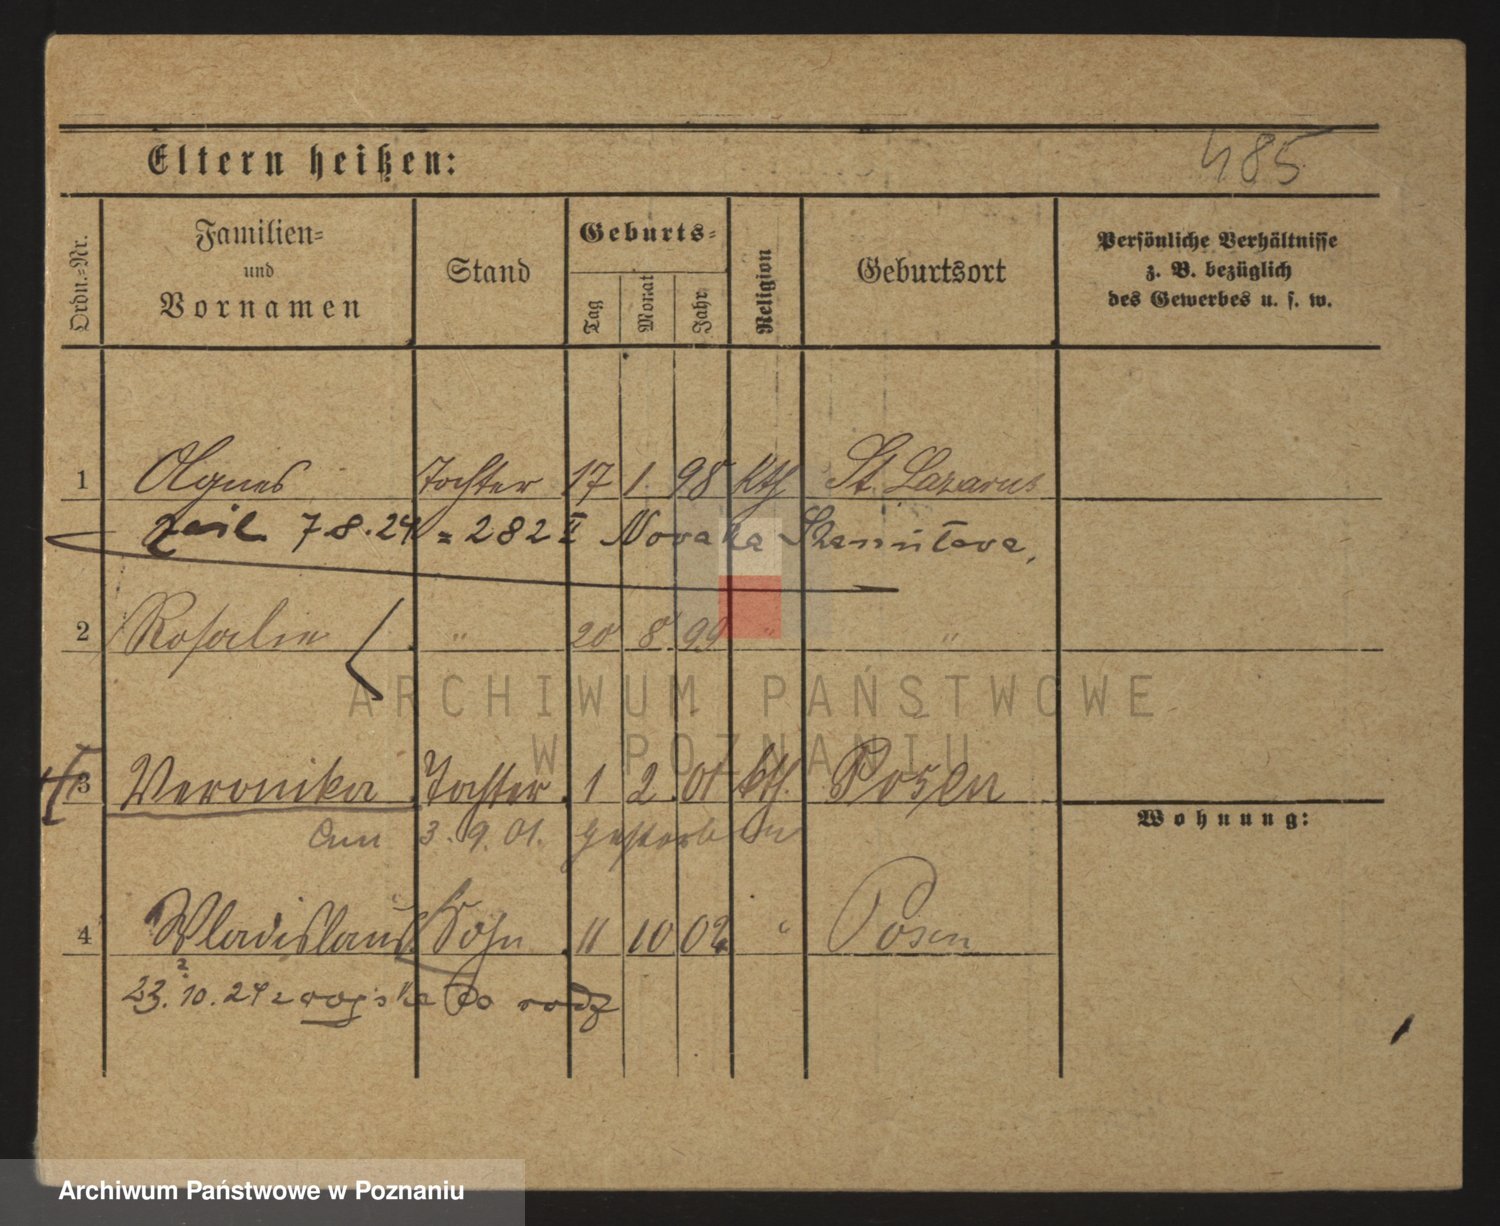 Eltern heißen:
485
Ordn.-Nr.
Familien-
und
Vornamen
Stand
Geburts-
Tag
Monat
Jahr
Religion
Geburtsort
Persönliche Verhältnisse
z. B. bezüglich
des Gewerbes u. s. w.
1 Agnes Tochter 17 1 98 kth St. Lazarus
7.8.24 = 282 II
2 Rosalie " 20 8 99 " "
ARCHIWUM PAŃSTWOWE
W POZNANIU
3 Veronika Tochter 1 2 01 kth. Posen
Am 3. 9. 01. gestorben
Wohnung:
4 Wladislaus Sohn 11 10 02 " Posen
23.10.24 z do rodz
Archiwum Państwowe w Poznaniu